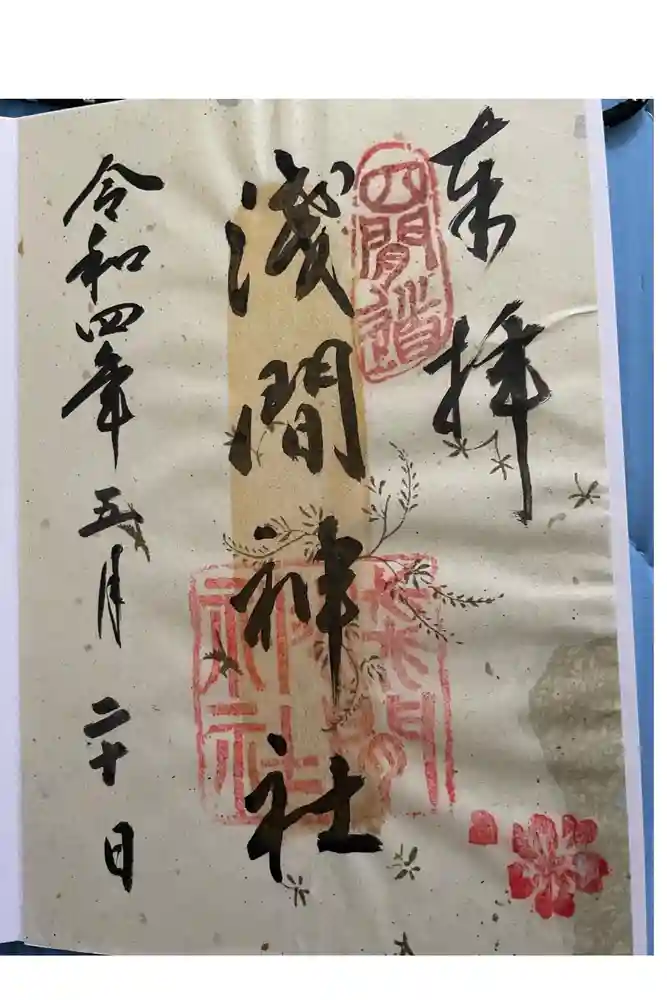 奉拝
四間道
浅間神社
浅間神社
令和四年五月二十日